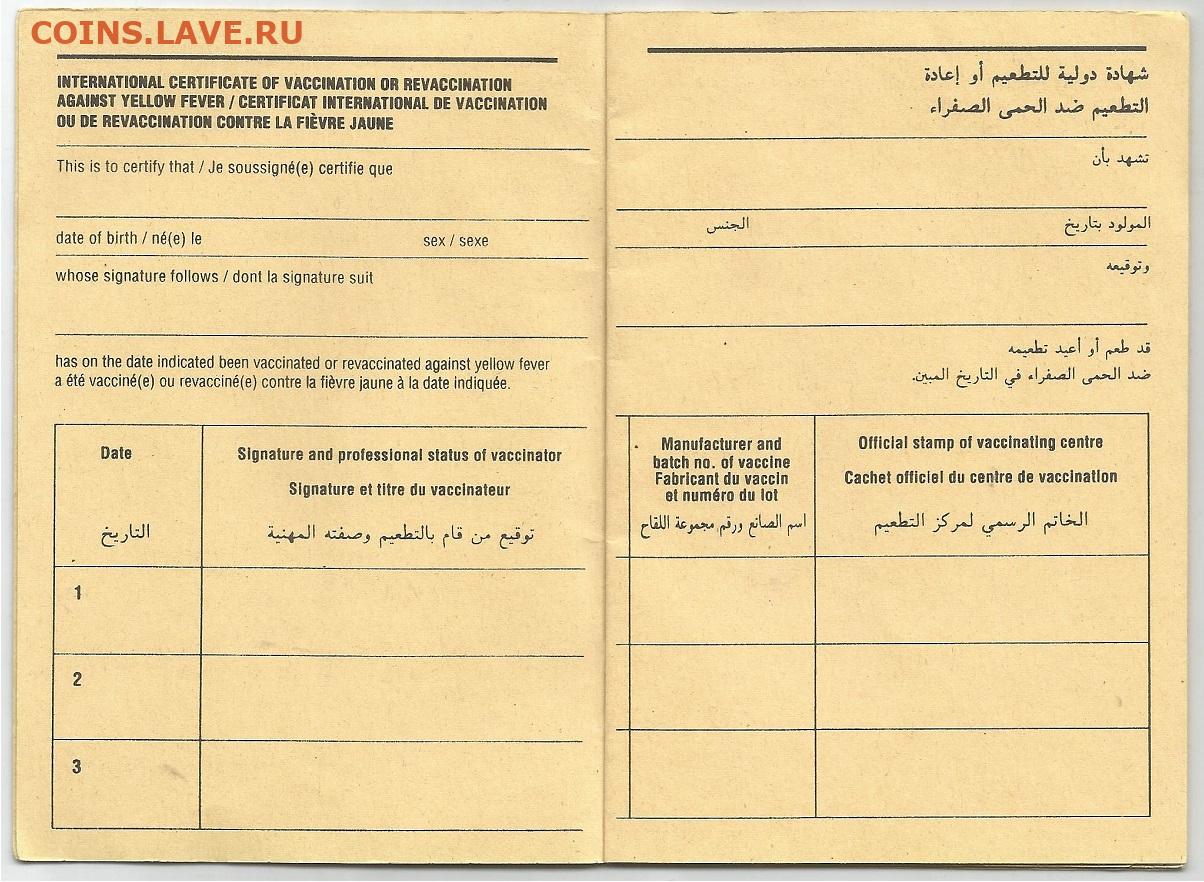 COINS.LAVE.RU
INTERNATIONAL CERTIFICATE OF VACCINATION OR REVACCINATION
AGAINST YELLOW FEVER / CERTIFICAT INTERNATIONAL DE VACCINATION
OU DE REVACCINATION CONTRE LA FIÈVRE JAUNE
This is to certify that / Je soussigné(e) certifie que
date of birth / né(e) le
sex / sexe
whose signature follows / dont la signature suit
has on the date indicated been vaccinated or revaccinated against yellow fever
a été vacciné(e) ou revacciné(e) contre la fièvre jaune à la date indiquée.
Date
التاريخ
Signature and professional status of vaccinator
Signature et titre du vaccinateur
توقيع من قام بالتطعيم وصفته المهنية
1
2
3
شهادة دولية للتطعيم أو إعادة
التطعيم ضد الحمى الصفراء
تشهد بأن
المولود بتاريخ
الجنس
وتوقيعه
قد طعم أو أعيد تطعيمه
ضد الحمى الصفراء في التاريخ المبين.
Manufacturer and
batch no. of vaccine
Fabricant du vaccin
et numéro du lot
اسم الصانع ورقم مجموعة اللقاح
Official stamp of vaccinating centre
Cachet officiel du centre de vaccination
الخاتم الرسمي لمركز التطعيم